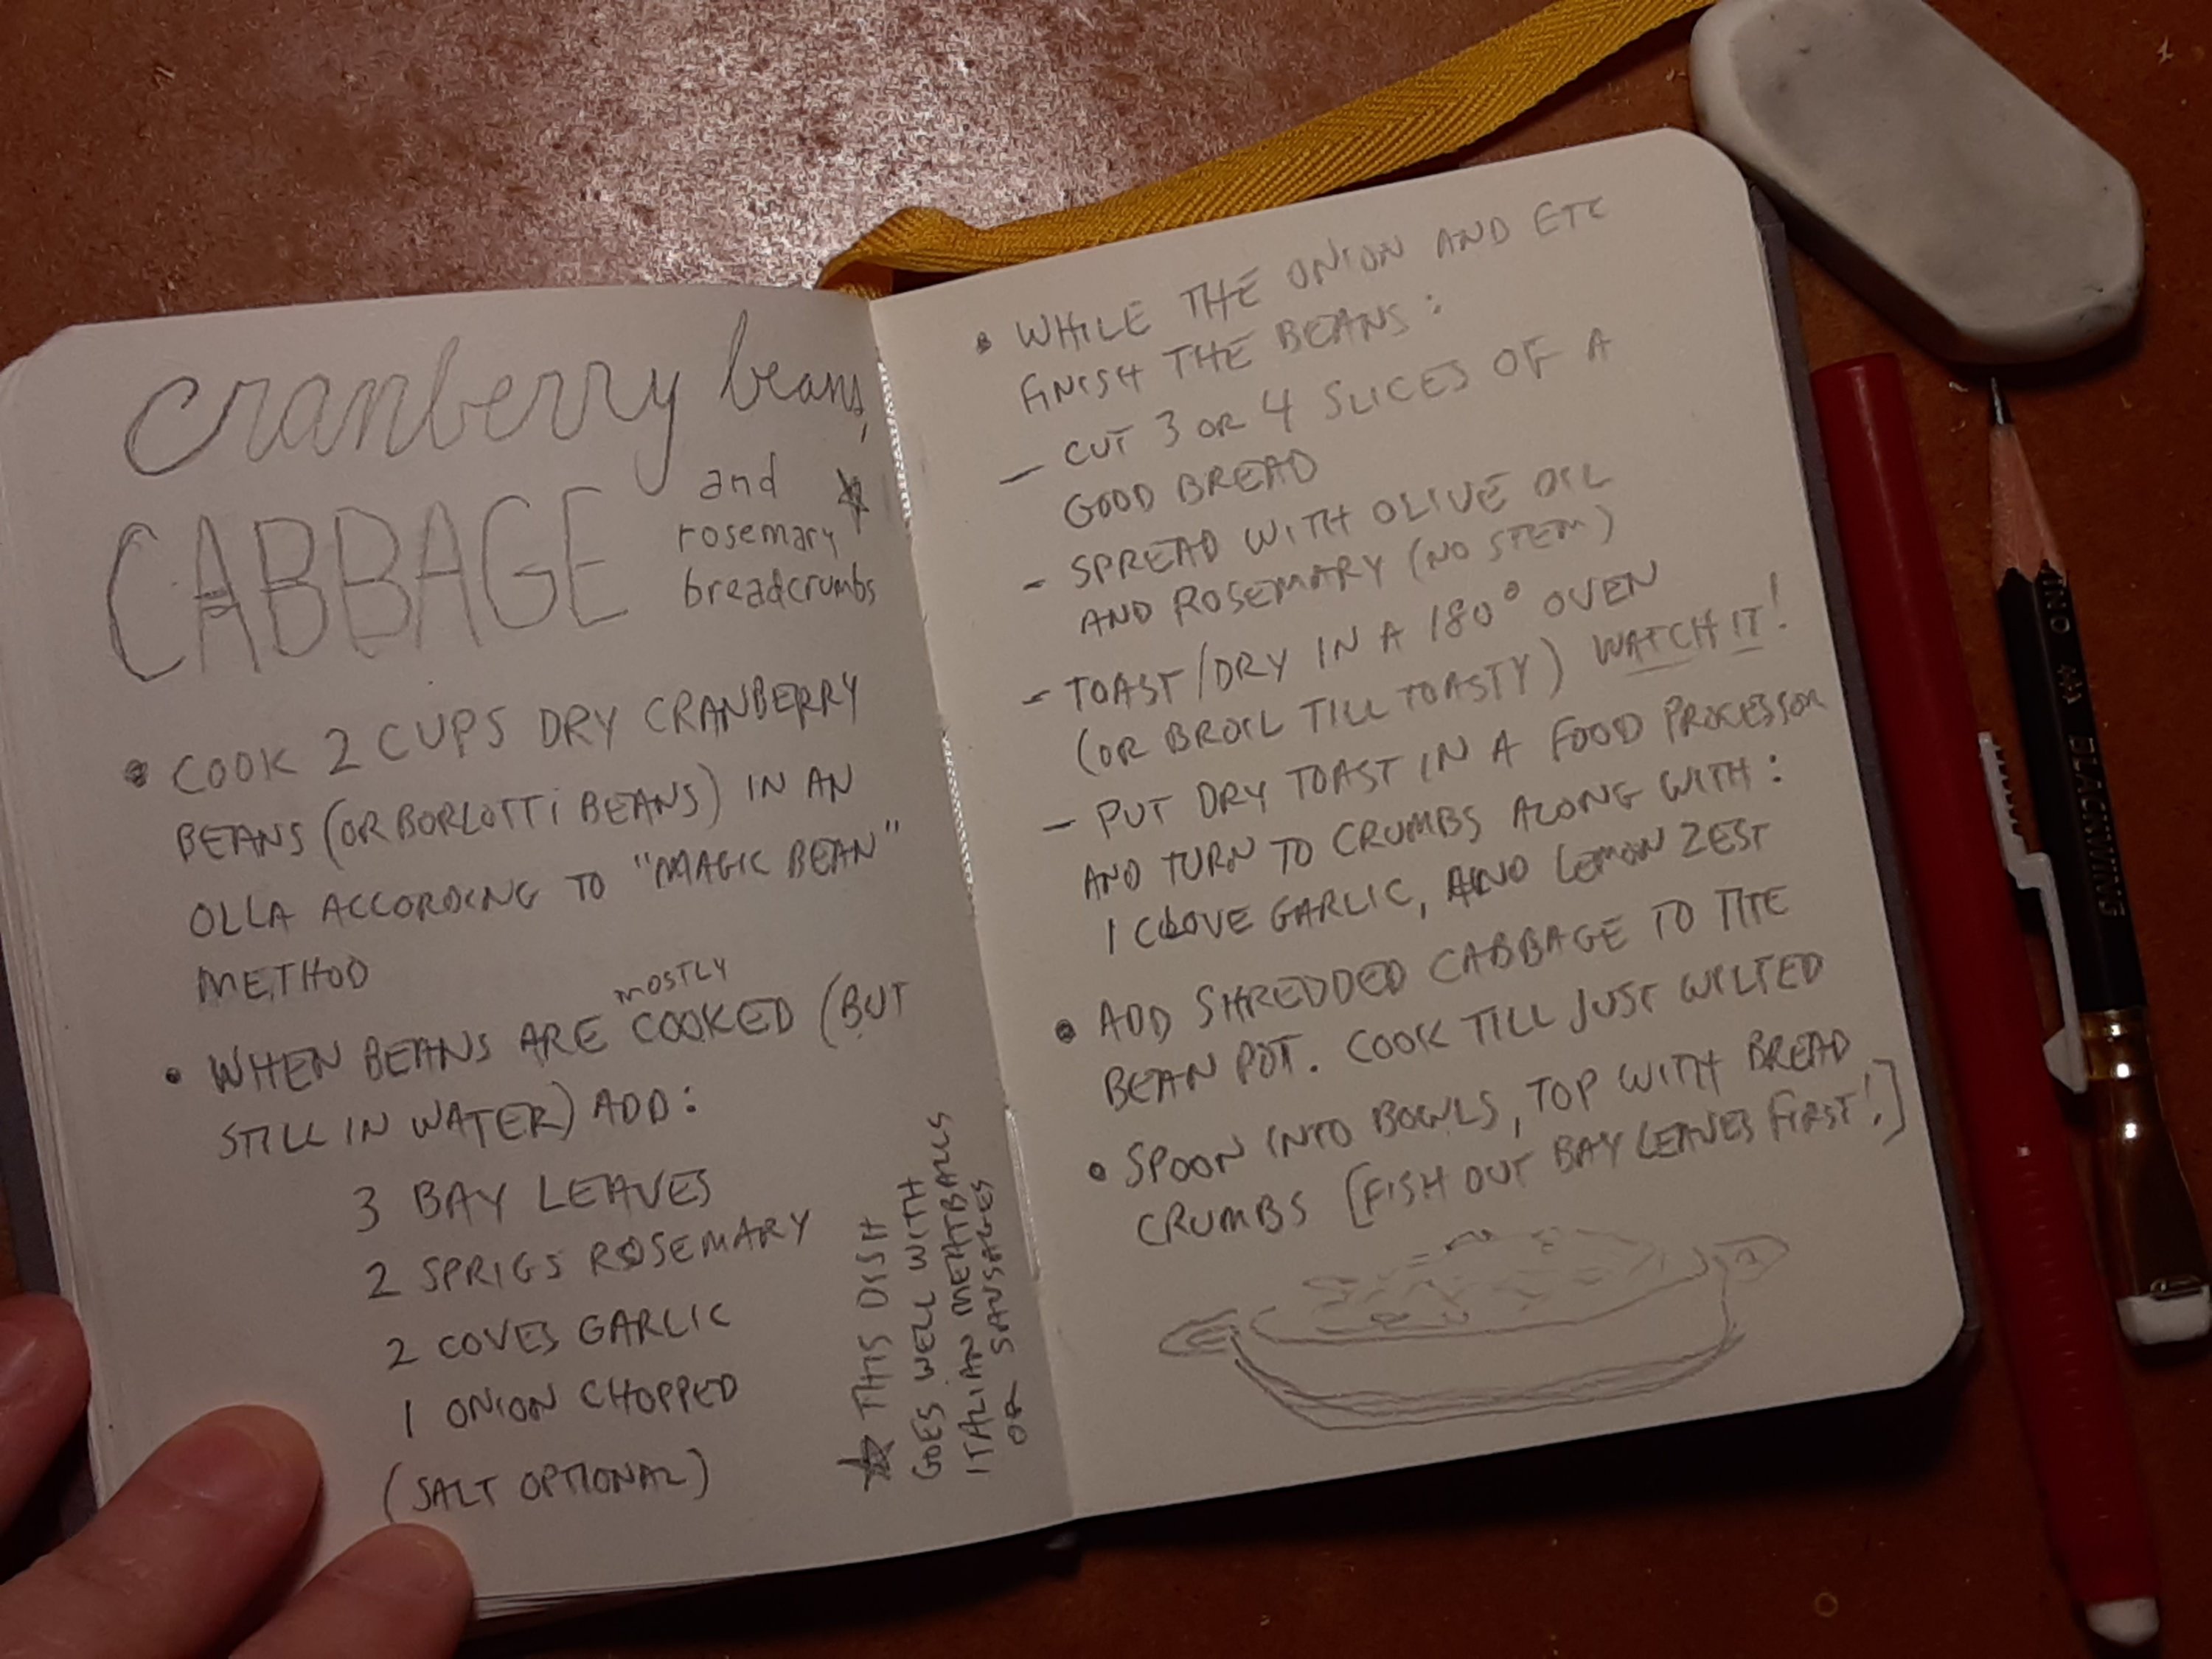 cranberry beans,
CABBAGE
and
rosemary
breadcrumbs
• COOK 2 CUPS DRY CRANBERRY
BEANS (OR BORLOTTI BEANS) IN AN
OLLA ACCORDING TO "MAGIC BEAN"
METHOD
mostly
• WHEN BEANS ARE COOKED (BUT
STILL IN WATER) ADD:
3 BAY LEAVES
2 SPRIGS ROSEMARY
2 COVES GARLIC
1 ONION CHOPPED
(SALT OPTIONAL)
★ THIS DISH
GOES WELL WITH
ITALIAN MEATBALLS
OR SAUSAGES
• WHILE THE ONION AND ETC
FINISH THE BEANS:
— CUT 3 OR 4 SLICES OF A
GOOD BREAD
- SPREAD WITH OLIVE OIL
AND ROSEMARY (NO STEM)
- TOAST/DRY IN A 180° OVEN
(OR BROIL TILL TOASTY) WATCH IT!
— PUT DRY TOAST IN A FOOD PROCESSOR
AND TURN TO CRUMBS ALONG WITH:
1 CLOVE GARLIC, AND LEMON ZEST
• ADD SHREDDED CABBAGE TO THE
BEAN POT. COOK TILL JUST WILTED
• SPOON INTO BOWLS, TOP WITH BREAD
CRUMBS [FISH OUT BAY LEAVES FIRST!]
BLACKWING